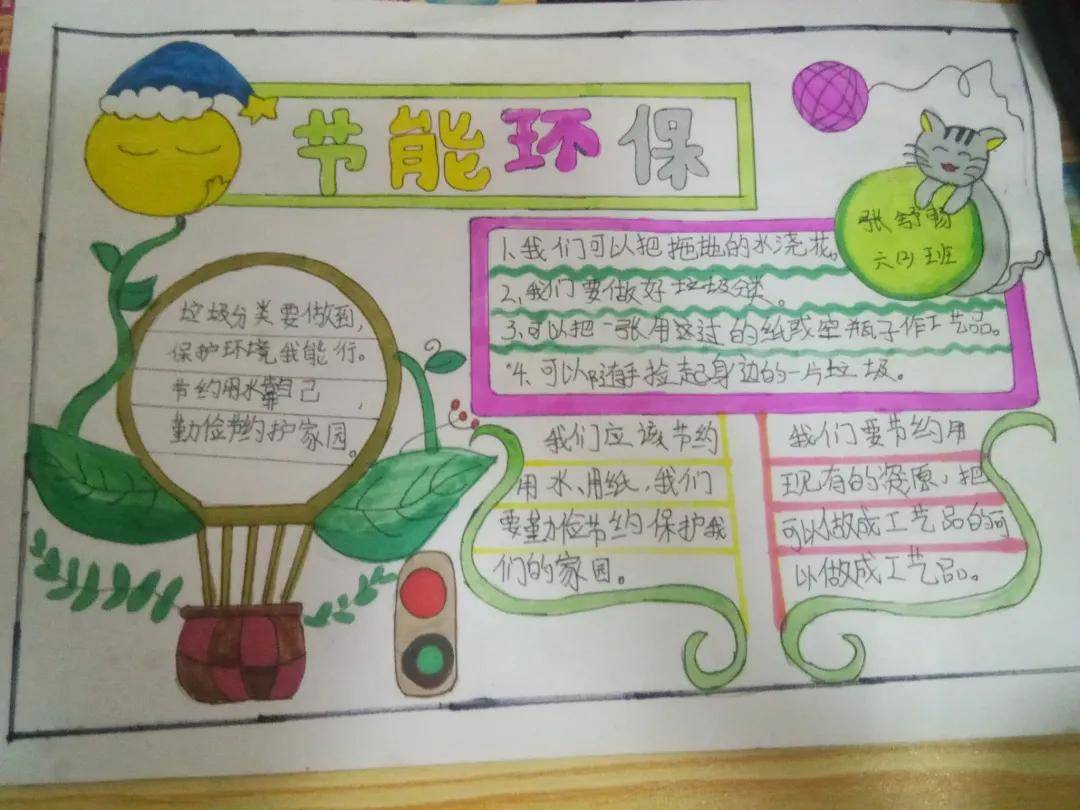 节能环保
张舒畅
六四班
垃圾分类要做到,
保护环境我能行。
节约用水靠自己,
勤俭节约护家园。
1、我们可以把拖地的水浇花。
2、我们要做好垃圾分类。
3、可以把一张用这过的纸或空瓶子作工艺品。
4、可以随手捡起身边的一片垃圾。
我们应该节约
用水、用纸,我们
要勤俭节约保护我
们的家园。
我们要节约用
现有的资原,把
可以做成工艺品的可
以做成工艺品。